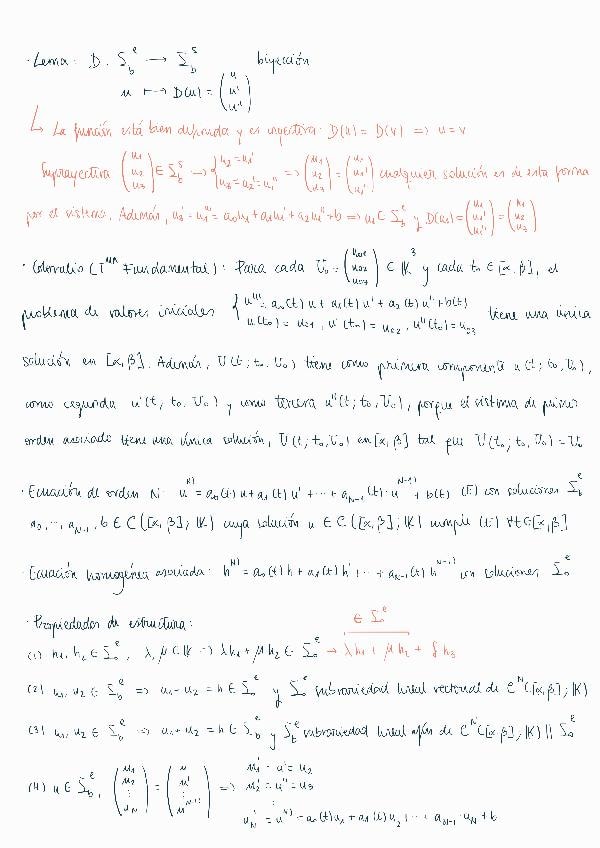 · Lema: D: Σ_b^e → Σ_b^s biyección
u ↦ D(u) = (u, u', u'')
↳ La función está bien definida y es inyectiva: D(u) = D(v) ⇒ u = v
Suprayectiva (u1, u2, u3) ∈ Σ_b^s → { u2 = u1' ; u3 = u2' = u1'' ⇒ (u1, u2, u3) = (u1, u1', u1'') cualquier solución es de esta forma
por el sistema. Además, u3' = u1''' = a0u1 + a1u1' + a2u1'' + b ⇒ u1 ∈ Σ_b^e y D(u1) = (u1, u1', u1'') = (u1, u2, u3)
· Corolario (Tma Fundamental): Para cada U0 = (u01, u02, u03) ∈ K^3 y cada t0 ∈ [α, β], el
problema de valores iniciales { u''' = a0(t) u + a1(t) u' + a2(t) u'' + b(t) ; u(t0) = u01, u'(t0) = u02, u''(t0) = u03 tiene una única
solución en [α, β]. Además, U(t; t0, U0) tiene como primera componente u(t; t0, U0),
como segunda u'(t; t0, U0) y como tercera u''(t; t0, U0), porque el sistema de primer
orden asociado tiene una única solución, U(t; t0, U0) en [α, β] tal que U(t0; t0, U0) = U0
· Ecuación de orden N: u^N) = a0(t) u + a1(t) u' + ··· + a_{N-1}(t) · u^{N-1)} + b(t) (E) con soluciones Σ_b^e
a0, ..., a_{N-1}, b ∈ C([α, β]; K) cuya solución u ∈ C([α, β]; K) cumple (E) ∀t ∈ [α, β]
· Ecuación homogénea asociada: h^N) = a0(t) h + a1(t) h' + ··· + a_{N-1}(t) h^{N-1)} con soluciones Σ_0^e
· Propiedades de estructura:
∈ Σ^e
(1) h1, h2 ∈ Σ_0^e, λ, μ ∈ K ⇒ λh1 + μh2 ∈ Σ_0^e → λh1 + μh2 + δh3
(2) u1, u2 ∈ Σ_b^e ⇒ u1 - u2 = h ∈ Σ_0^e y Σ_0^e subvariedad lineal vectorial de C^N([α, β]; K)
(3) u1, u2 ∈ Σ_b^e ⇒ u1 + u2 = h ∈ Σ_b^e y Σ_b^e subvariedad lineal afín de C^N([α, β]; K) || Σ_0^e
(4) u ∈ Σ_b^e, (u1, u2, ⋮, uN) = (u, u', ⋮, u^{N-1)}) ⇒ u1' = u' = u2
u2' = u'' = u3
⋮
uN' = u^N) = a0(t) u1 + a1(t) u2 + ··· + a_{N-1} · uN + b